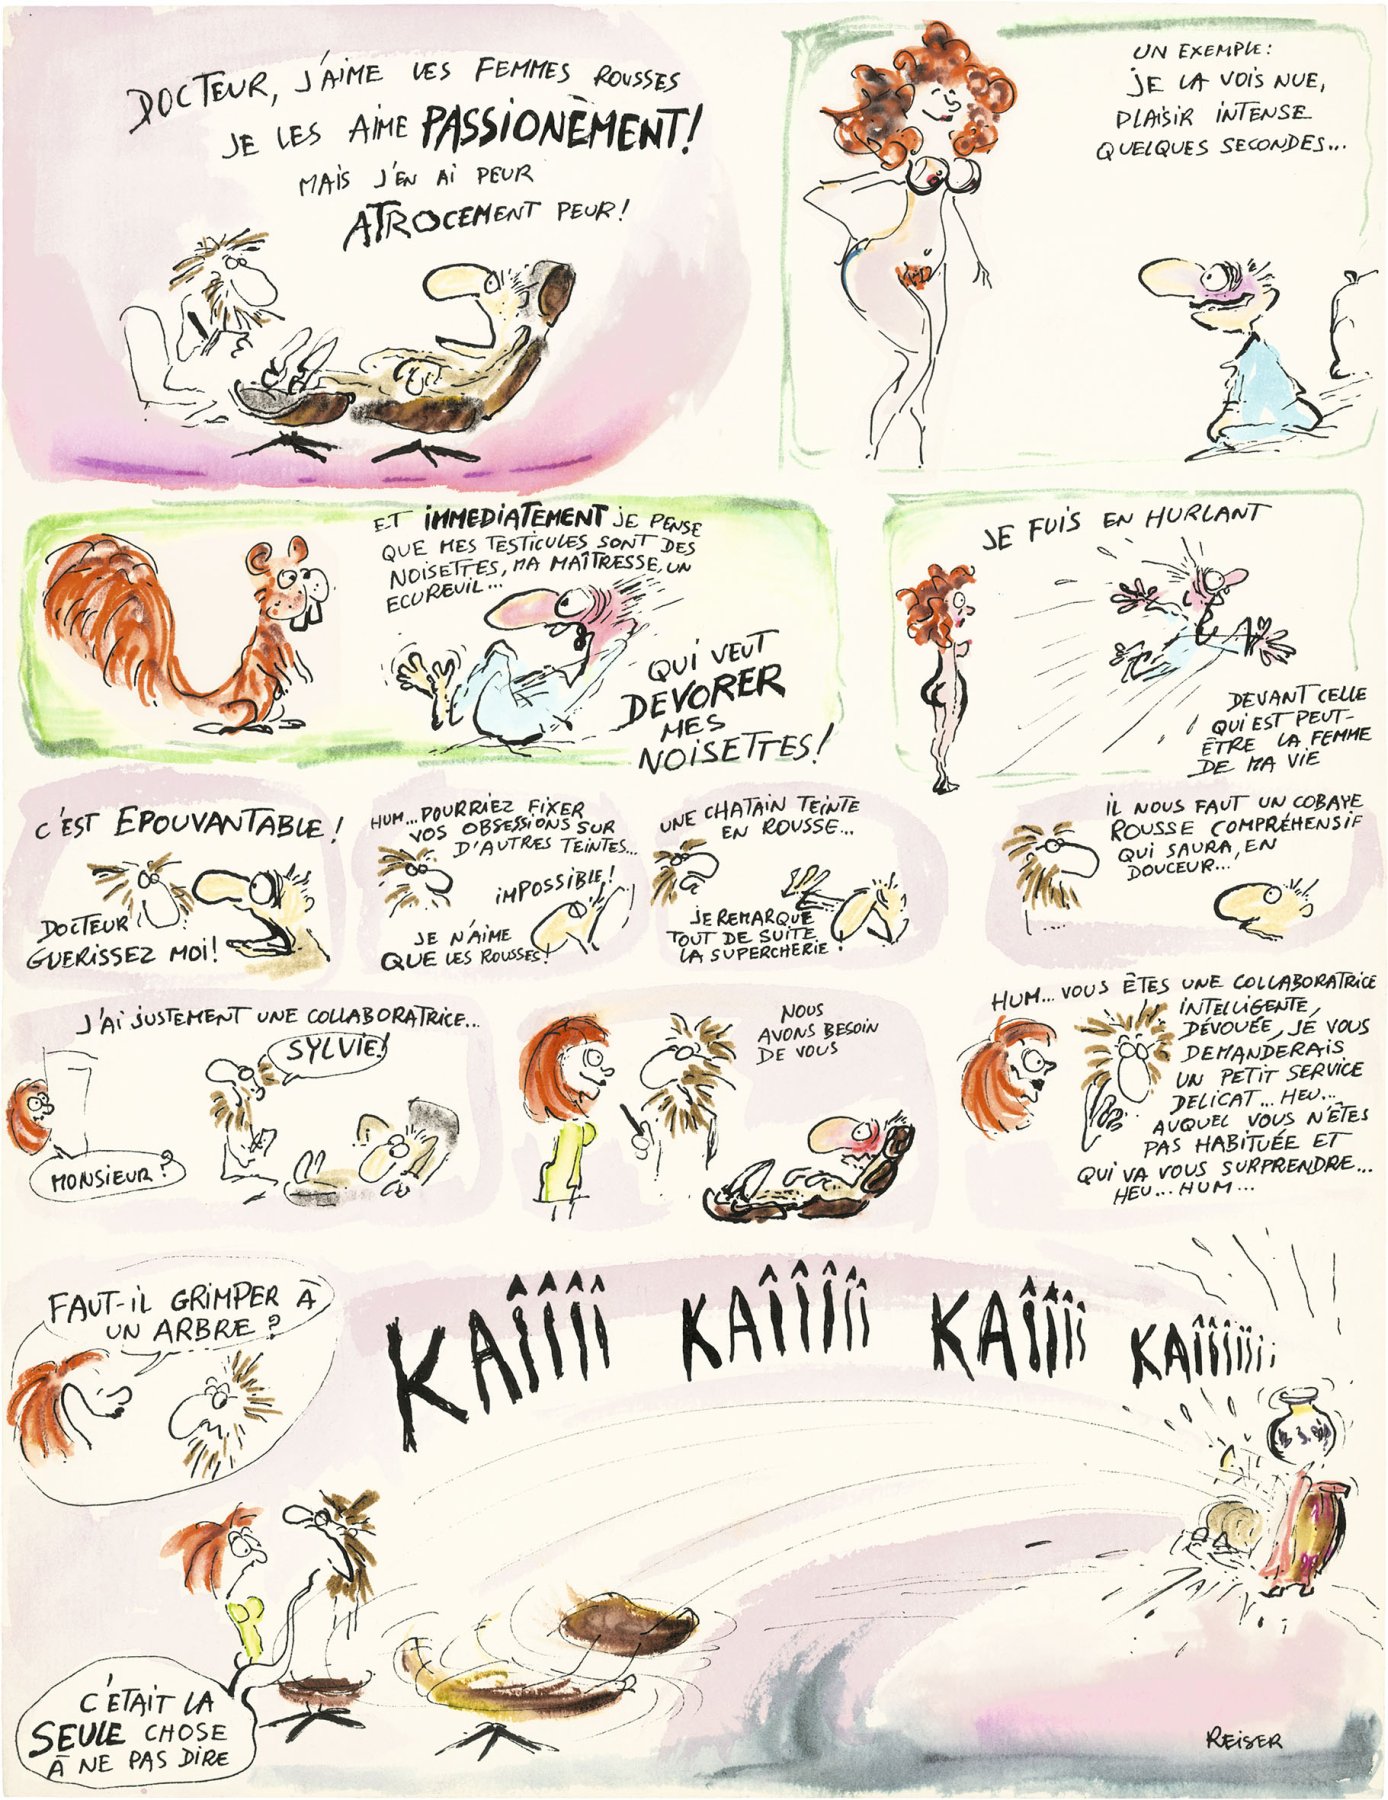 DOCTEUR, J'AIME LES FEMMES ROUSSES
JE LES AIME PASSIONÈMENT!
MAIS J'EN AI PEUR
ATROCEMENT PEUR!
UN EXEMPLE:
JE LA VOIS NUE,
PLAISIR INTENSE
QUELQUES SECONDES...
ET IMMEDIATEMENT JE PENSE
QUE MES TESTICULES SONT DES
NOISETTES, MA MAÎTRESSE, UN
ECUREUIL...
QUI VEUT
DEVORER
MES
NOISETTES!
JE FUIS EN HURLANT
DEVANT CELLE
QUI EST PEUT-
ÊTRE LA FEMME
DE MA VIE
C'EST EPOUVANTABLE!
DOCTEUR
GUERISSEZ MOI!
HUM...POURRIEZ FIXER
VOS OBSESSIONS SUR
D'AUTRES TEINTES...
IMPOSSIBLE!
JE N'AIME
QUE LES ROUSSES!
UNE CHATAIN TEINTE
EN ROUSSE...
JE REMARQUE
TOUT DE SUITE
LA SUPERCHERIE!
IL NOUS FAUT UN COBAYE
ROUSSE COMPRÉHENSIF
QUI SAURA, EN
DOUCEUR...
J'AI JUSTEMENT UNE COLLABORATRICE...
SYLVIE!
MONSIEUR?
NOUS
AVONS BESOIN
DE VOUS
HUM... VOUS ÊTES UNE COLLABORATRICE
INTELLIGENTE,
DÉVOUÉE, JE VOUS
DEMANDERAIS
UN PETIT SERVICE
DELICAT... HEU...
AUQUEL VOUS N'ÊTES
PAS HABITUÉE ET
QUI VA VOUS SURPRENDRE...
HEU... HUM...
FAUT-IL GRIMPER À
UN ARBRE?
KAÎÎÎÎ KAÎÎÎÎÎ KAÎÎÎÎ KAÎÎÎÎÎÎÎ
C'ETAIT LA
SEULE CHOSE
À NE PAS DIRE
REISER